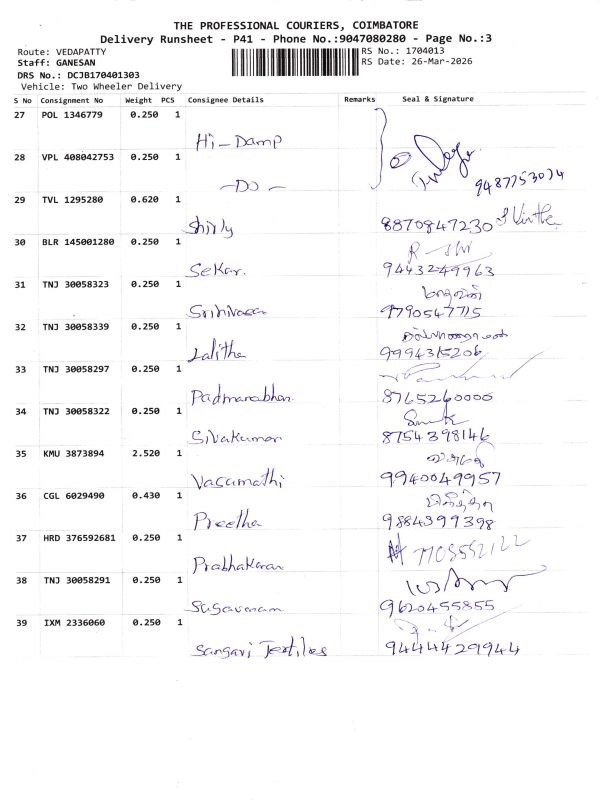 THE PROFESSIONAL COURIERS, COIMBATORE
Delivery Runsheet - P41 - Phone No.:9047080280 - Page No.:3
Route: VEDAPATTY RS No.: 1704013
Staff: GANESAN RS Date: 26-Mar-2026
DRS No.: DCJB170401303
Vehicle: Two Wheeler Delivery
S No Consignment No Weight PCS Consignee Details Remarks Seal & Signature
27 POL 1346779 0.250 1
Hi-Damp
28 VPL 408042753 0.250 1
-Do- 9487753074
29 TVL 1295280 0.620 1
Shirly 8870847230
30 BLR 145001280 0.250 1
Sekar. 9443249963
31 TNJ 30058323 0.250 1
Srinivasan 9790547715
32 TNJ 30058339 0.250 1
Lalitha 9994315206
33 TNJ 30058297 0.250 1
Padmanabhan. 8765260006
34 TNJ 30058322 0.250 1
Sivakumar 8754398146
35 KMU 3873894 2.520 1
Vasumathi 9940049957
36 CGL 6029490 0.430 1
Preetha 9884399398
37 HRD 376592681 0.250 1
Prabhakaran
38 TNJ 30058291 0.250 1
Sugavanam 9620455855
39 IXM 2336060 0.250 1
Sangavi Textiles 9444429944